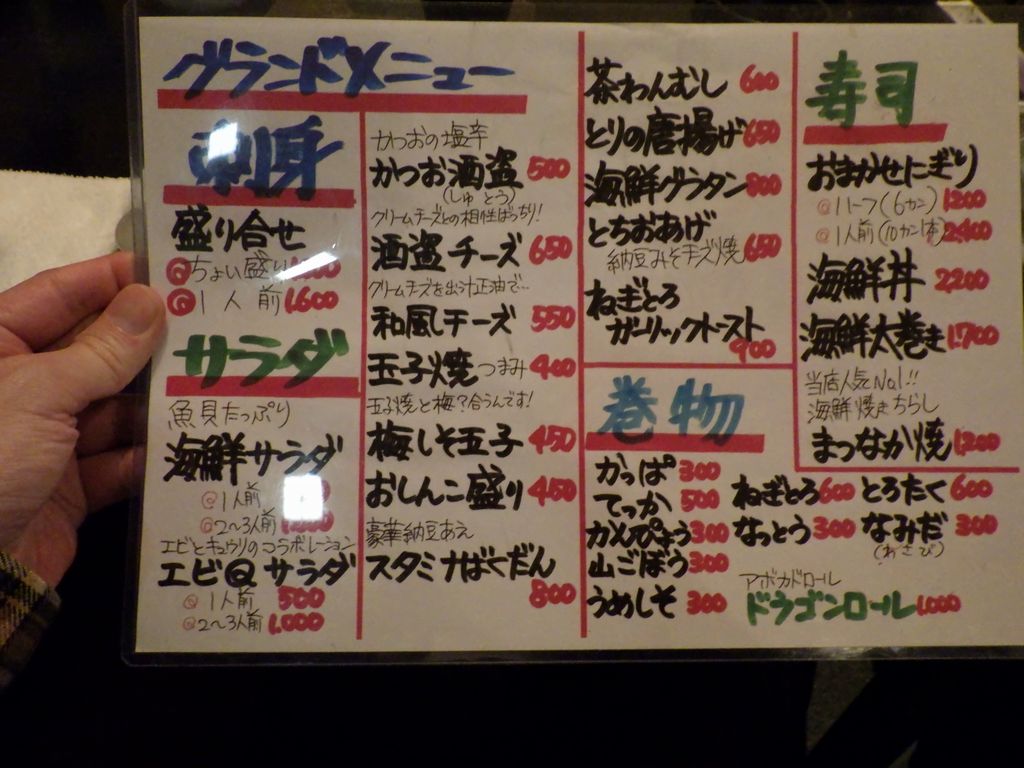 グランドメニュー
刺身
盛り合せ
ちょい盛り
1人前 1,600
サラダ
魚貝たっぷり
海鮮サラダ
1人前
2〜3人前
エビとキュウリのコラボレーション
エビQサラダ
1人前 500
2〜3人前 1,000
かつおの塩辛
かつお酒盗 500
(しゅとう)
クリームチーズとの相性ばっちり!
酒盗チーズ 650
クリームチーズを出汁正油で…
和風チーズ 550
玉子焼 つまみ 400
玉子焼と梅?合うんです!
梅しそ玉子 450
おしんこ盛り 450
豪華納豆あえ
スタミナばくだん
800
茶わんむし 600
とりの唐揚げ 650
海鮮グラタン 800
とちおあげ
納豆みそチーズ焼 650
ねぎとろ
ガーリックトースト
900
巻物
かっぱ 300
てっか 500
かんぴょう 300
山ごぼう 300
うめしそ 300
ねぎとろ 600
なっとう 300
とろたく 600
なみだ 300
(わさび)
アボカドロール
ドラゴンロール 1,000
寿司
おまかせにぎり
ハーフ(6カン) 1200
1人前(10カン1本) 2400
海鮮丼 2200
海鮮太巻き 1,700
当店人気No1!!
海鮮焼きちらし
まつなか焼 1200